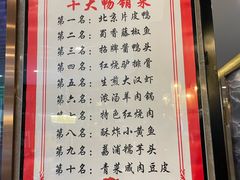 十大畅销菜
第一名：北京片皮鸭
第二名：蜀香藤椒鱼
第三名：招牌酱鸭头
第四名：红烧驴排骨
第五名：生煎大汉虾
第六名：浓汤羊肉锅
第七名：特色红烧肉
第八名：酥炸小黄鱼
第九名：荔浦糯芋头
第十名：青菜咸肉豆皮